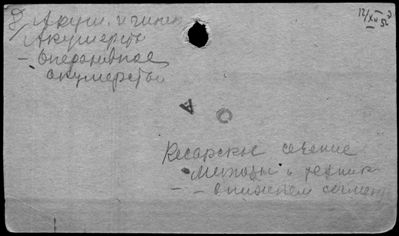 8) Акуш. и гинек
Акушерство
- Оперативное
акушерство
12/XII 52
А
О
Кесарское сечение
Методы и техник
- - в нижнем сегмент